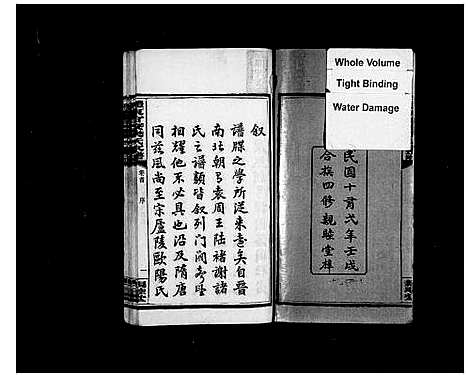 Whole Volume
Tight Binding
Water Damage
民國十有弌年壬戌
合族四修親睦堂梓
叙
譜牒之學所從来遠矣自晉
南北朝袁周王陸褚謝諸
氏之譜類皆叙列门閥
相耀他不必具也沿及隋唐
同兹風尚至宗廬陵歐陽氏
卷首 序 一